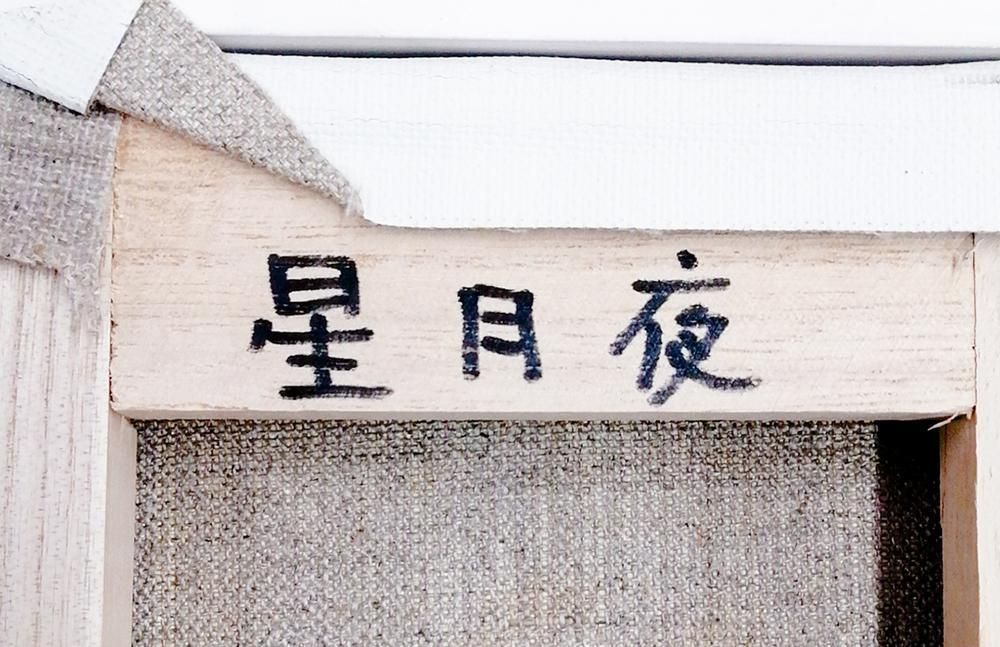 星月夜